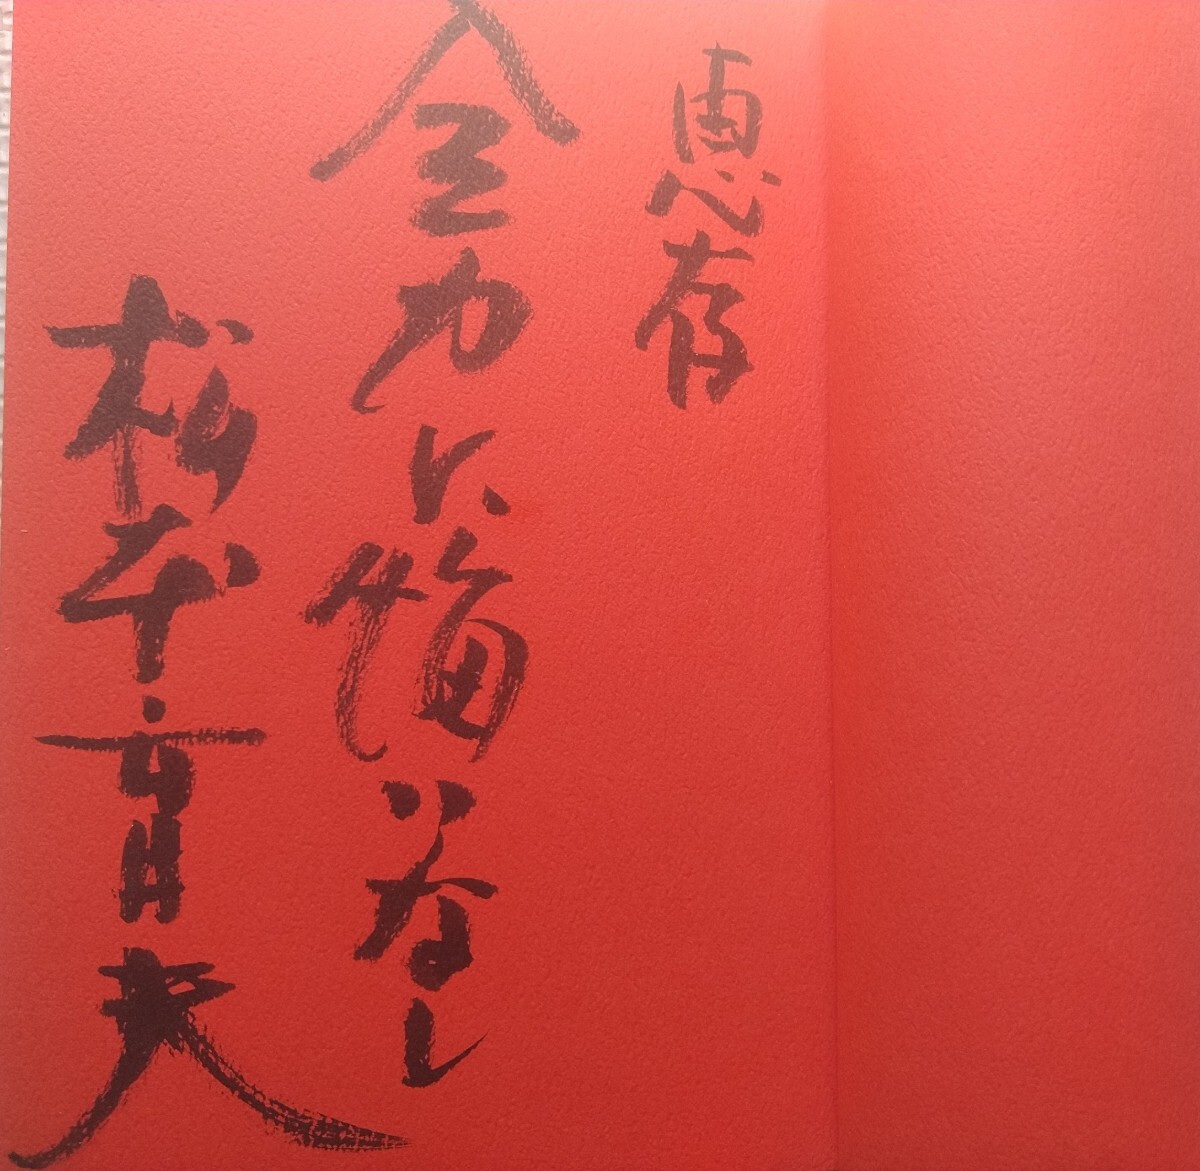 恵存
全力に悔いなし
松本育夫